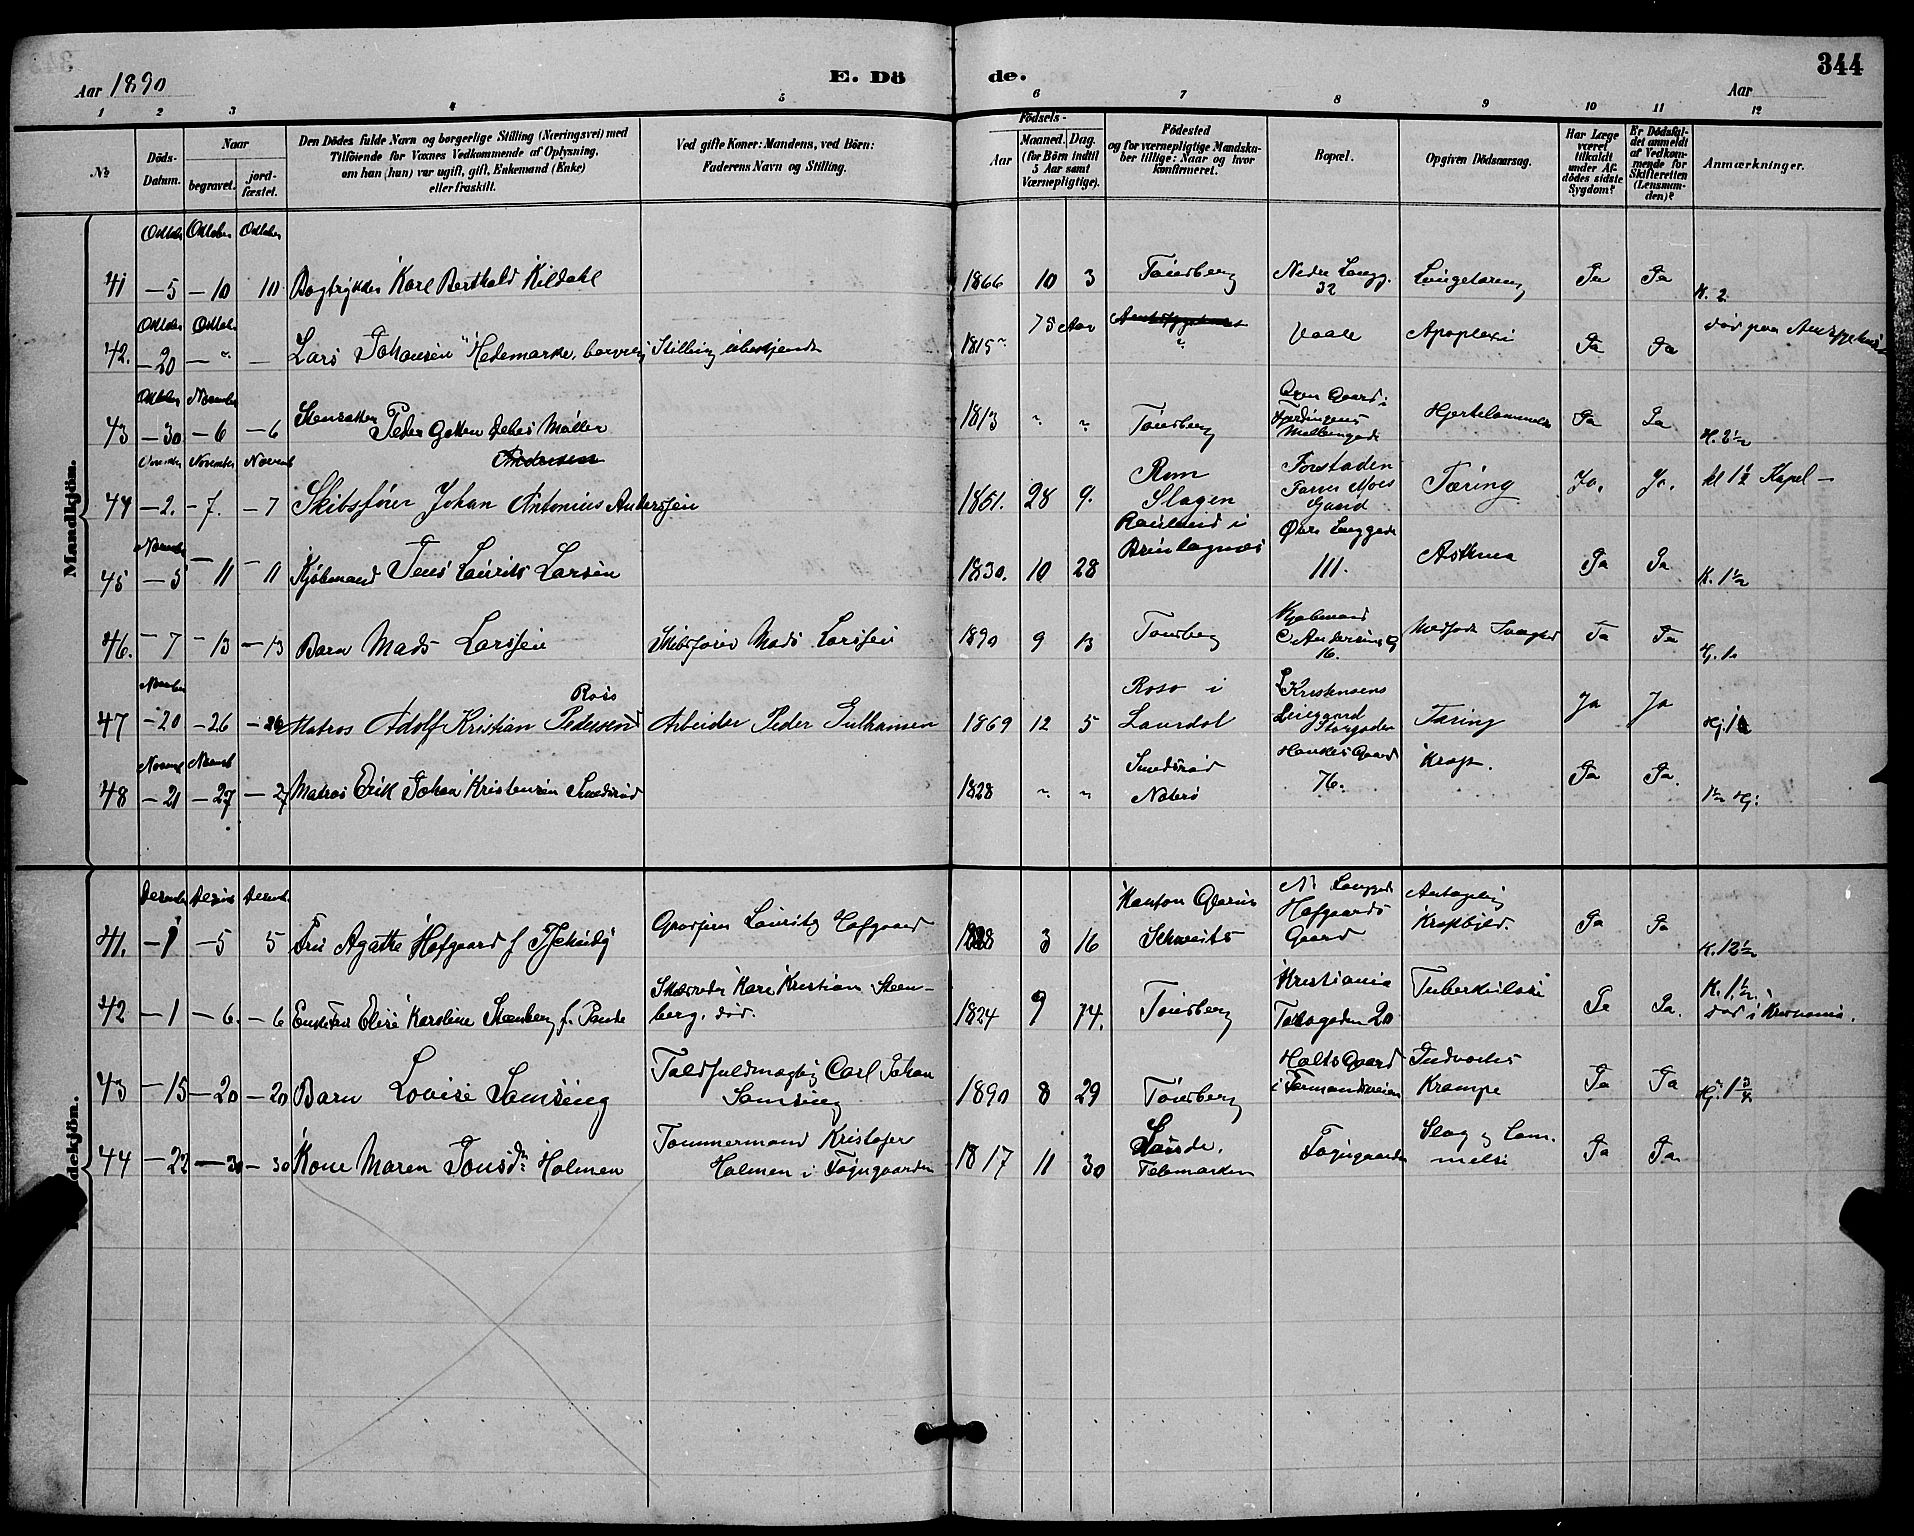 Aar 1890
E. Dö de.
344
Aar
1 2 3 4 5 6 7 8 9 10 11 12
№
Döds-Datum.
Naar
begravet.
jord-fæstet.
Den Dödes fulde Navn og borgerlige Stilling (Næringsvei) med
Tilföiende for Voxnes Vedkommende af Oplysning,
om han (hun) var ugift, gift, Enkemand (Enke)
eller fraskilt.
Ved gifte Koner: Mandens, ved Börn:
Faderens Navn og Stilling.
Födsels-
Aar
Maaned. Dag.
(for Börn indtil
5 Aar samt
Værnepligtige).
Födested
og for værnepligtige Mandska-
ber tillige: Naar og hvor
konfirmeret.
Bopæl.
Opgiven Dödsaarsag.
Har Læge
været
tilkaldt
under Af-
dödes sidste
Sygdom?
Er Dödsfal-
det anmeldt
af Vedkom-
mende for
Skifteretten
(Lensman-
den)?
Anmærkninger.
Mandkjön.
Oktober Oktober Oktober
41 – 5 – 10 10 Bogtrykker Karl Berthold Kildahl 1866 10 3 Tönsberg Nedre Langg. 32 Lungetæring Ja Ja K. 2
Oktober Oktob.
42. – 20 – " – Lars Johansen Hedemarke, Stilling ubekjendt 1815 75 Aar " Vaale Apoplexi Ja Ja død paa
Oktober November
43 – 30 – 6 – 6 Peder Møller 1813 " " Tönsberg Gaard i Ja Ja K. 2½
November November Novemb
Andersen
44 – 2. – 7. – 7 Skibsfører Johan Antonius Anderssen 1861. 28 9. Rom Slagen Forstaden Moes Gaard Tæring Ja. Ja. kl 1½ Kapel –
Novemb
45 – 5 – 11 – 11 Kjøbmand Jens Laurits Larsen 1830. 10 28 Øvre Langgade 111. Asthma Ja Ja K. 1½
46. – 7 – 13 – 13 Barn Mads Larssen Skibsfører Mads Larssen 1890 9 13 Tønsberg Kjøbmand C Andersens G 16. Medfødt Svaghed Ja Ja
November
Roso
47 – 20 – 26 – 26 Matros Adolf Kristian Pedersen Arbeider Peder 1869 12 5 Roso i Laurdal Kristensens Storgaden Tæring Ja Ja
Novemb Novemb
48 – 21 – 27 – 27 Matros Erik Johan Kristensen Smedsrød 1828 " " Smedsrød Nøterø Gaard 76. Kræft. Ja Ja. 1½ Hj.
Kvindekjön.
Decemb
41. – 1 – 5 5 Fru Agathe Hofgaard f Tschudy Grosserer Lauritz Hofgaard 3 16 Kanton Glarus Schweits N. Langgade Hofgaards Gaard Antagelig Kræftbyld. Ja Ja K. 12½
42 – 1 – 6. – 6 Enkefru Elise Karoline Steenberg f. Paude Karl Kristian Steen-
berg, død. 1824 9 Tönsberg Kristiania 20 Tuberkulose Ja Ja. K. 1½ død i Kristiania.
43 – 15 – 20 – 20 Barn Lovise Samsing Toldfuldmægtig Carl Johan
Samsing 1890 8 29 Tönsberg Holts Gaard i Farmandsveien Indvortes Krampe Ja Ja Hj. 1¾
44 – 22 – 30 – 30 Kone Maren Jonsdr. Holmen Tømmermand Kristofer
Holmen i Føyngaarden 1817 11 30 Telemarken Føyngaarden Slag og Lam-
melse Ja Ja